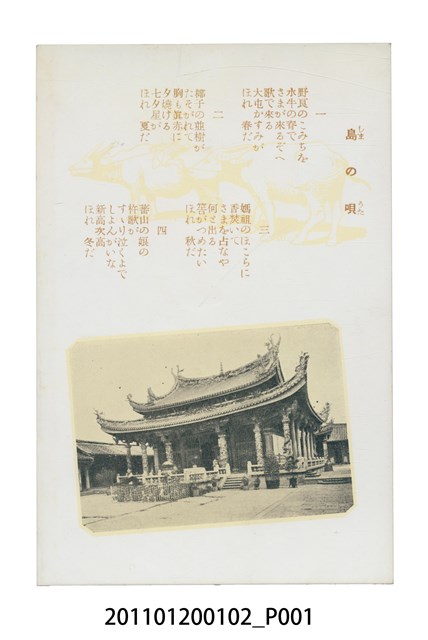 島の唄
しま
うた
一
野良のこみちを
水牛の脊で
さまが来るぞへ
歌で来る
大屯かすみが
ほれ 春だ
二
椰子の並樹が
たそがれて
胸も眞赤に
夕焼ける
七夕星が
ほれ 夏だ
三
媽祖のほこらに
香焚いて
さまを占なや
何と出る
筶がつめたい
ほれ 秋だ
四
蕃山の娘の
杵歌が
すゝり泣くまで
しょんがいな
新高次高
ほれ 冬だ
201101200102_P001